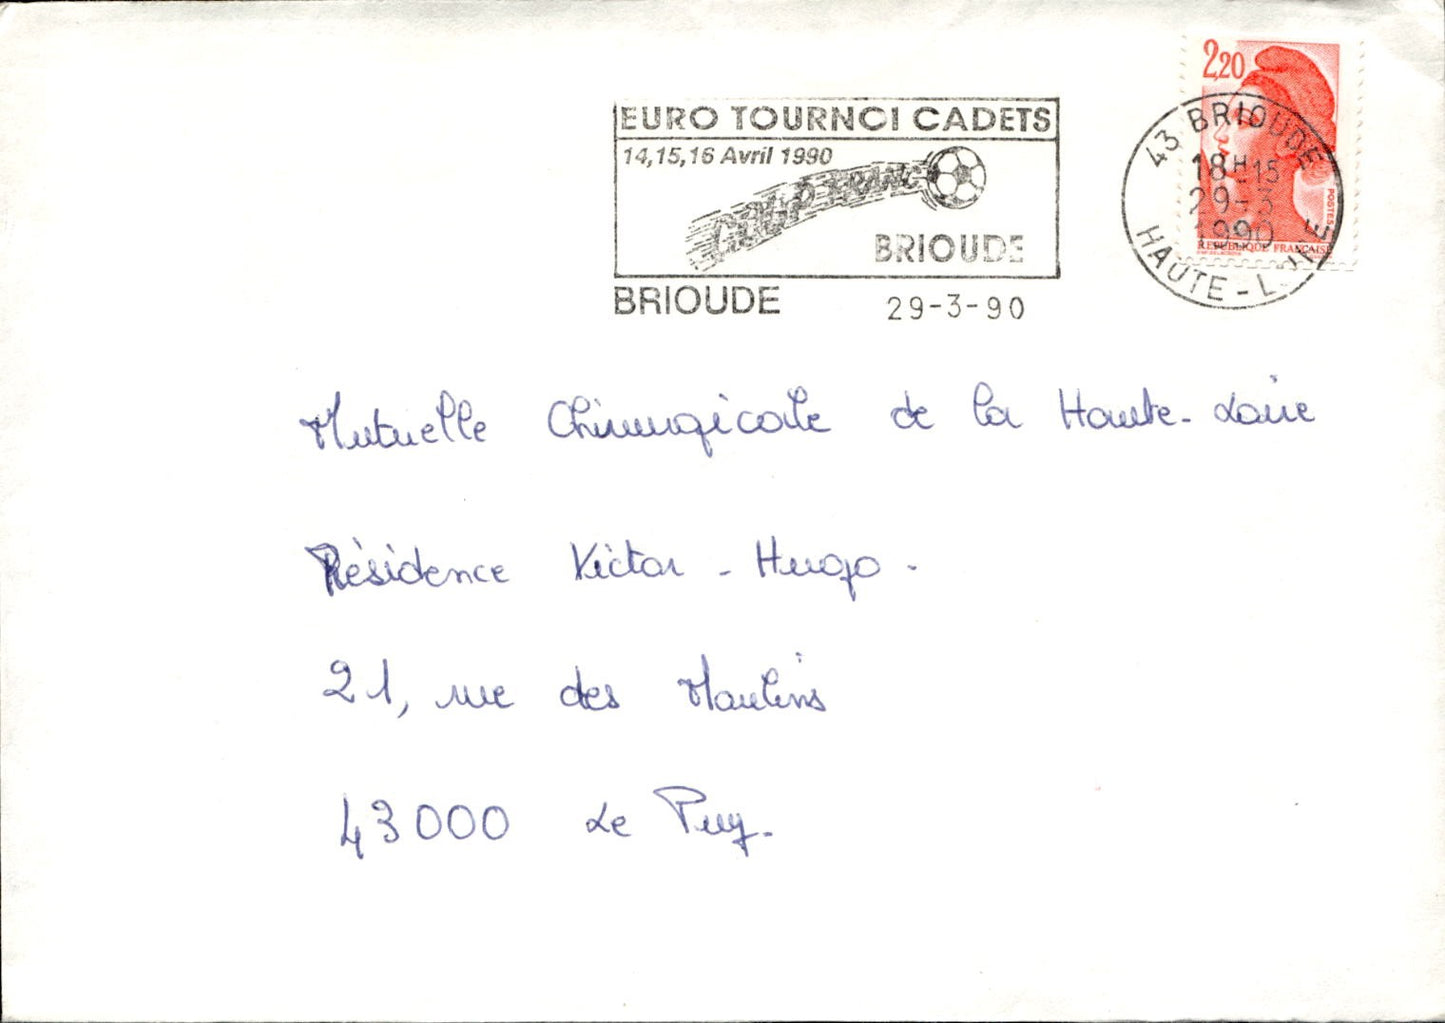 EURO TOURNOI CADETS
14,15,16 Avril 1990
BRIOUDE
BRIOUDE 29-3-90
2,20
43 BRIOUDE
18H-15
29-3
1990
HAUTE-LOIRE
POSTES
REPUBLIQUE FRANÇAISE
Mutuelle Chirurgicale de la Haute-Loire
Résidence Victor-Hugo.
21, rue des Moulins
43000 Le Puy.